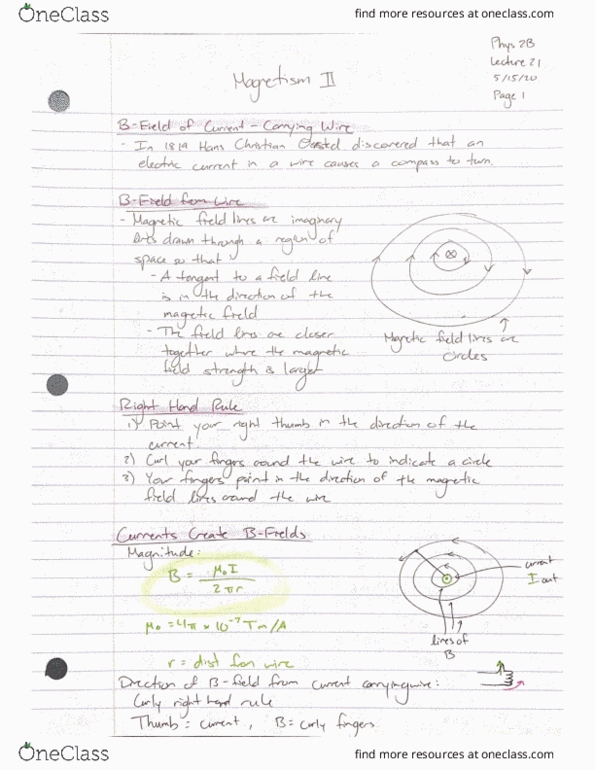 OneClass
find more resources at oneclass.com
Phys 2B
Lecture 21
5/15/20
Page 1
Magnetism II
B-Field of Current-Carrying Wire
- In 1819 Hans Christian Oersted discovered that an
electric current in a wire causes a compass to turn.
B-Field from Wire
- Magnetic field lines are imaginary
lines drawn through a region of
space so that
- A tangent to a field line
is in the direction of the
magnetic field
- The field lines are closer
together where the magnetic
field strength is larger
Magnetic field lines are
circles
Right Hand Rule
1) Point your right thumb in the direction of the
current.
2) Curl your fingers around the wire to indicate a circle
3) Your fingers point in the direction of the magnetic
field lines around the wire
Currents Create B-Fields
Magnitude:
B = μ₀I / 2πr
μ₀ = 4π × 10⁻⁷ Tm/A
r = dist from wire
current
I out
lines of
B
Direction of B-field from current carrying wire:
Curly right hand rule
Thumb = current, B = curly fingers
OneClass
find more resources at oneclass.com